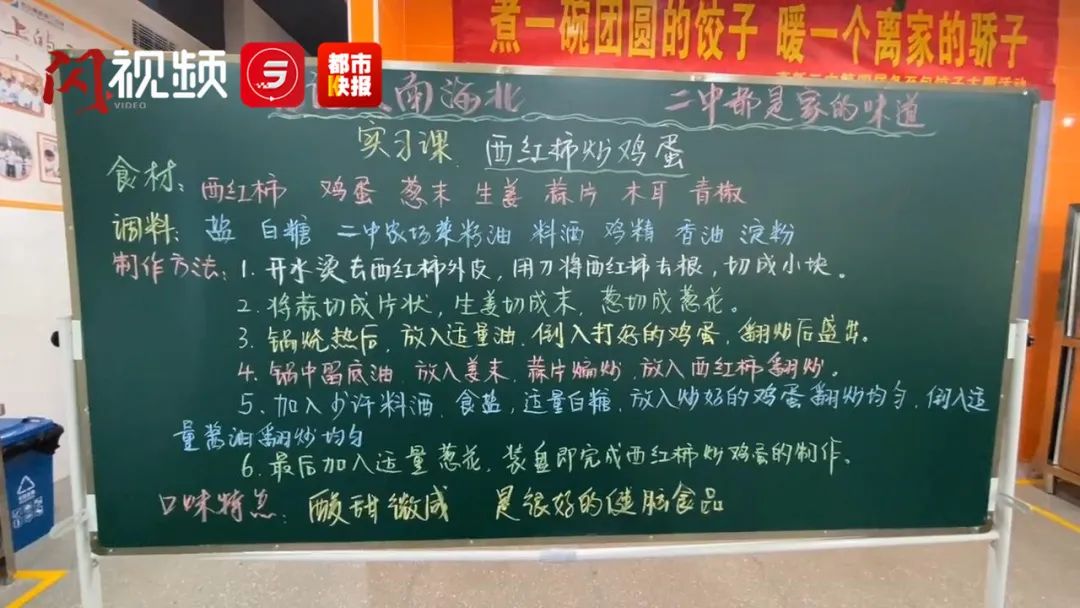 上的
闪视频
VIDEO
都市
快报
煮一碗团圆的饺子 暖一个离家的骄子
南海北 二中都是家的味道
实习课:西红柿炒鸡蛋
食材:西红柿 鸡蛋 葱末 生姜 蒜片 木耳 青椒
调料:盐 白糖 二中农场菜籽油 料酒 鸡精 香油 淀粉
制作方法:1. 开水烫去西红柿外皮,用刀将西红柿去根,切成小块。
2. 将蒜切成片状,生姜切成末,葱切成葱花。
3. 锅烧热后,放入适量油,倒入打好的鸡蛋,翻炒后盛出。
4. 锅中留底油,放入姜末,蒜片煸炒,放入西红柿翻炒。
5、加入少许料酒,食盐,适量白糖,放入炒好的鸡蛋翻炒均匀,倒入适
量酱油翻炒均匀
6. 最后加入适量葱花,装盘即完成西红柿炒鸡蛋的制作。
口味特点:酸甜微咸 是很好的健脑食品